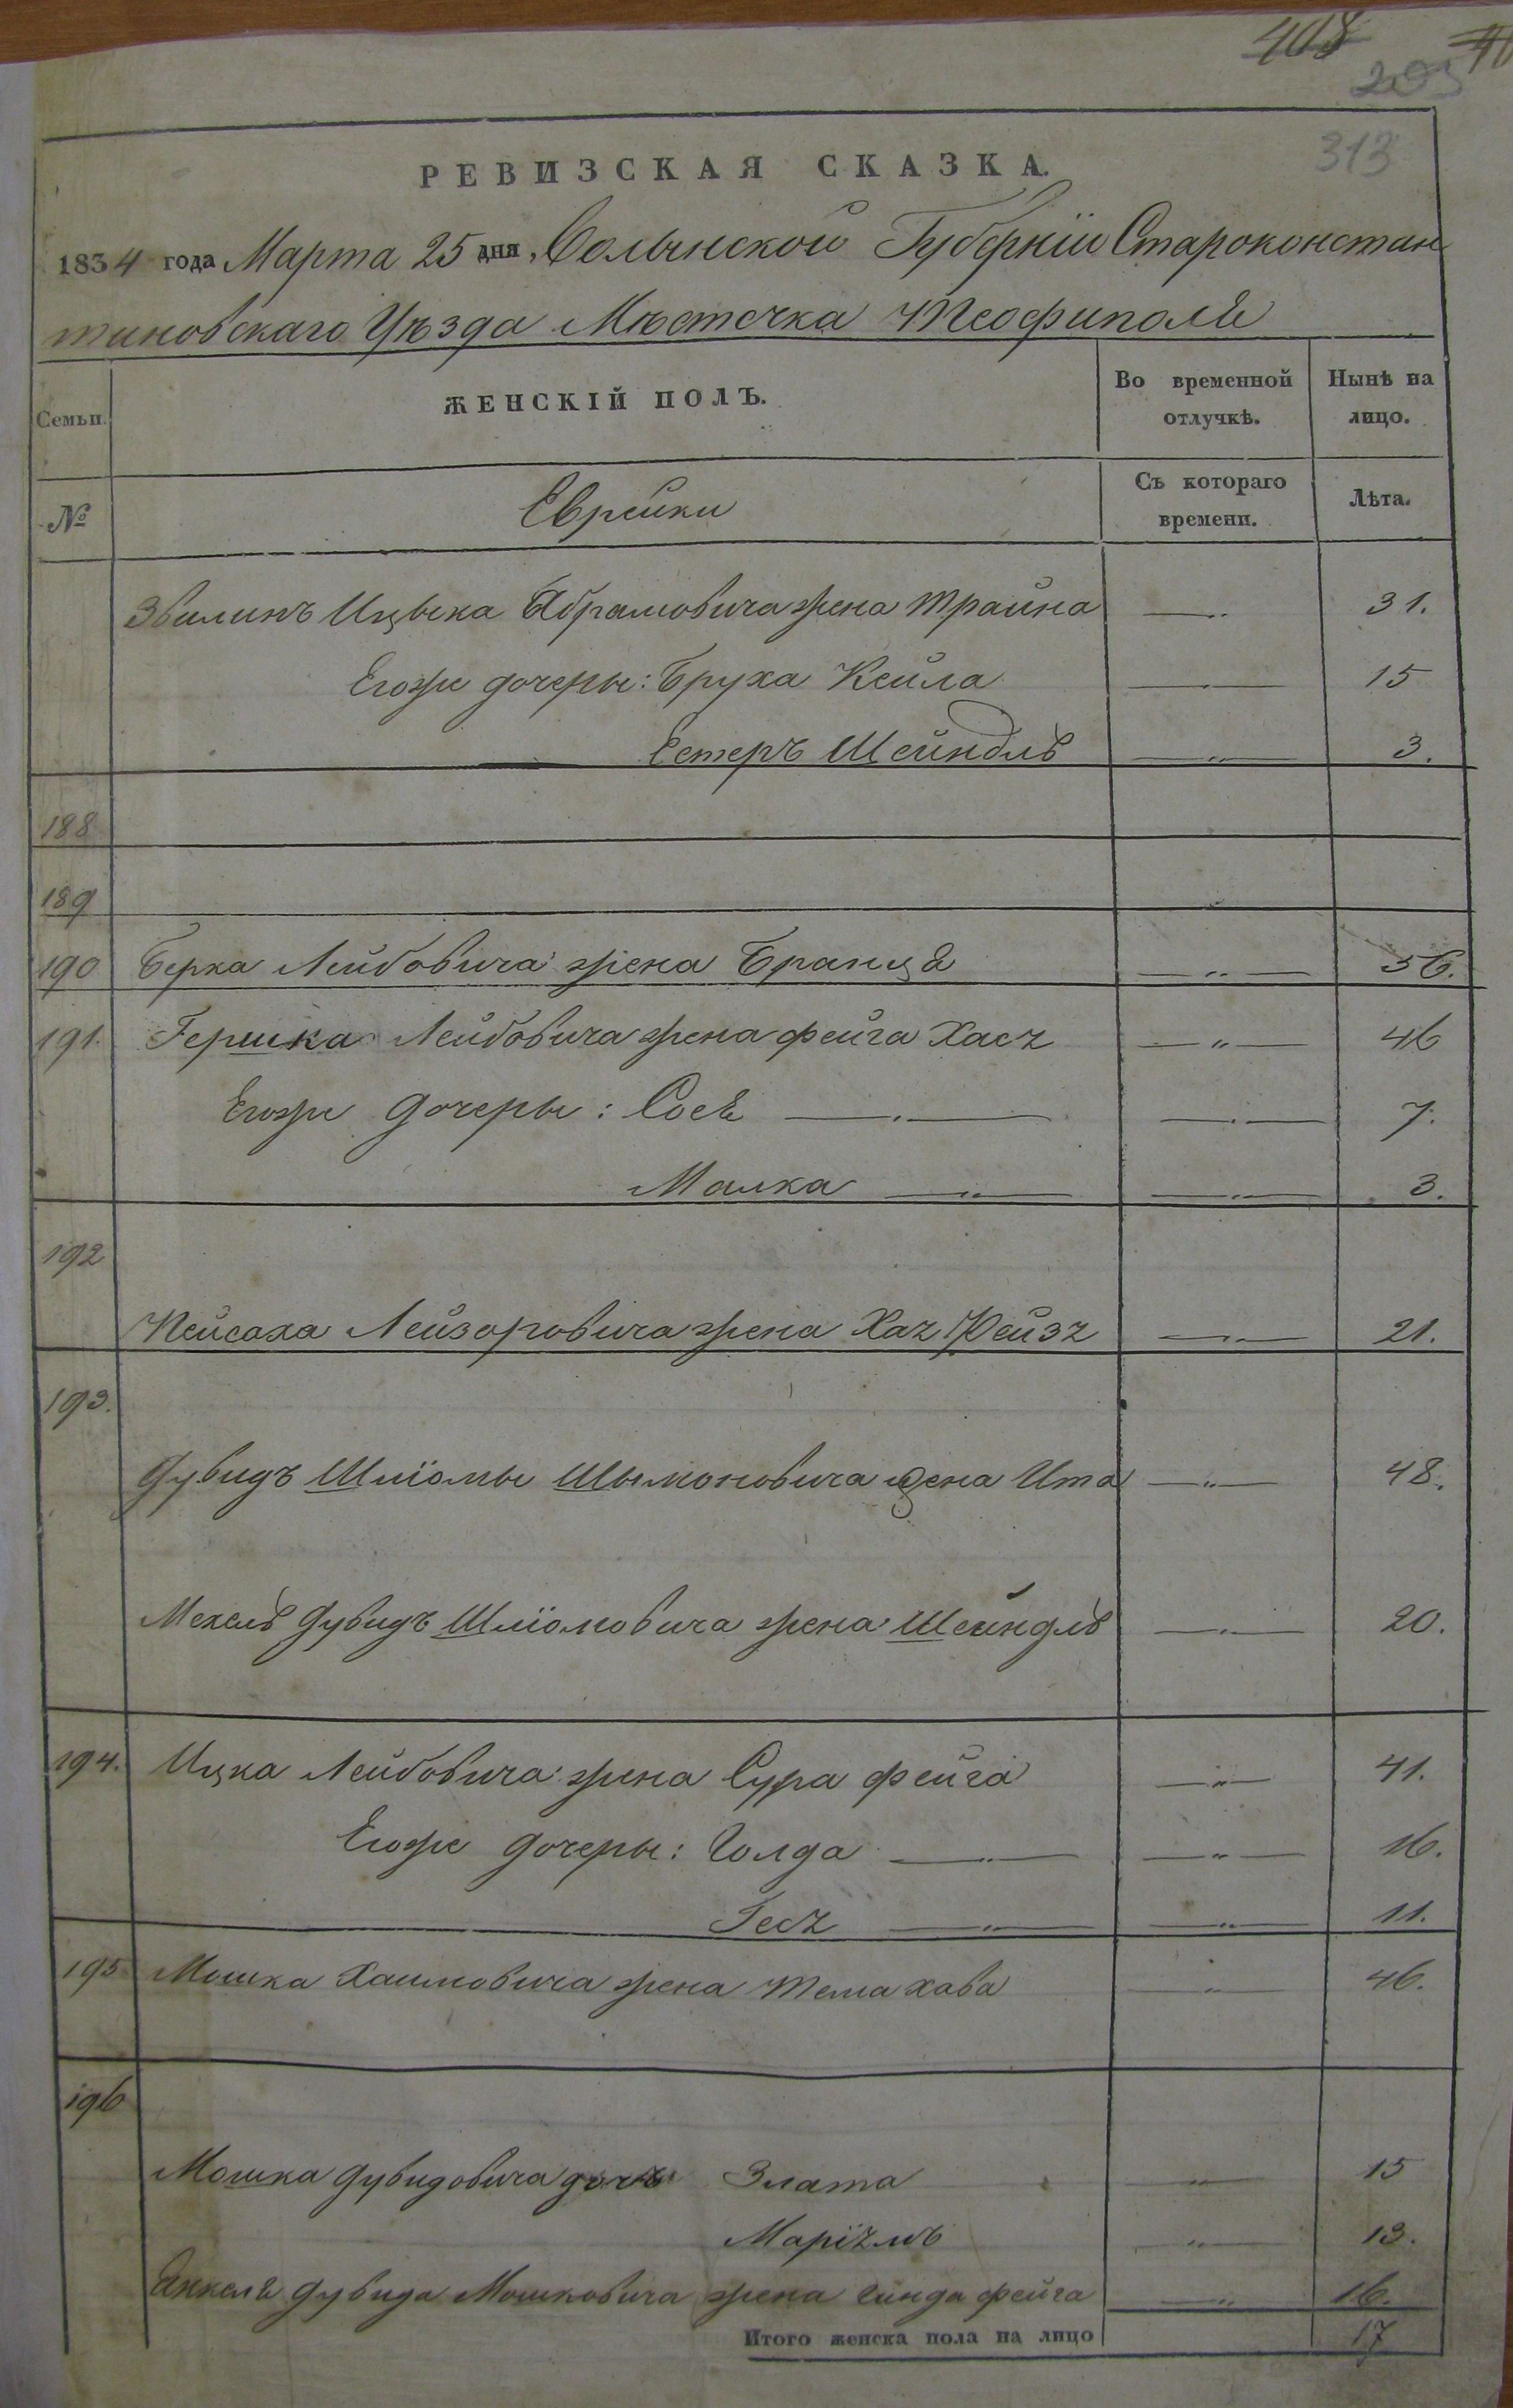 408
203
313
РЕВИЗСКАЯ СКАЗКА.
1834 года Марта 25 дня, Волынской Губерніи Староконстан
тиновскаго Уѣзда Мѣстечка Теофиполя
Семьи.
ЖЕНСКІЙ ПОЛЪ.
Во временной отлучкѣ.
Нынѣ на лицо.
№
Еврейки
Съ котораго времени.
Лѣта.
Звилинъ Ицька Абрамовича жена Трайна 31.
Егожъ дочеры: Бруха Кейла 15
Естеръ Шейндль 3.
188
189
190 Берка Лейбовича жена Бранця 56.
191. Гершка Лейбовича жена фейга Хася 46
Егоже дочеры: Сося 7.
Малка 3.
192
Пейсаха Лейзоровича жена Хая Рейзя 21.
193.
Дувидъ Шліомы Шымоновича жена Ита 48.
Мехель Дувидъ Шліомовича жена Шейндль 20.
194. Ицка Лейбовича жена Сура фейга 41.
Егоже дочеры: Голда 16.
Геся 11.
195 Мошка Хаимовича жена Тема хава 46.
196
Мошка Дувидовича дочь Злата 15
Маріямъ 13.
Янкеля Дувида Мошковича жена гинда фейга 16.
Итого женска пола на лицо 17